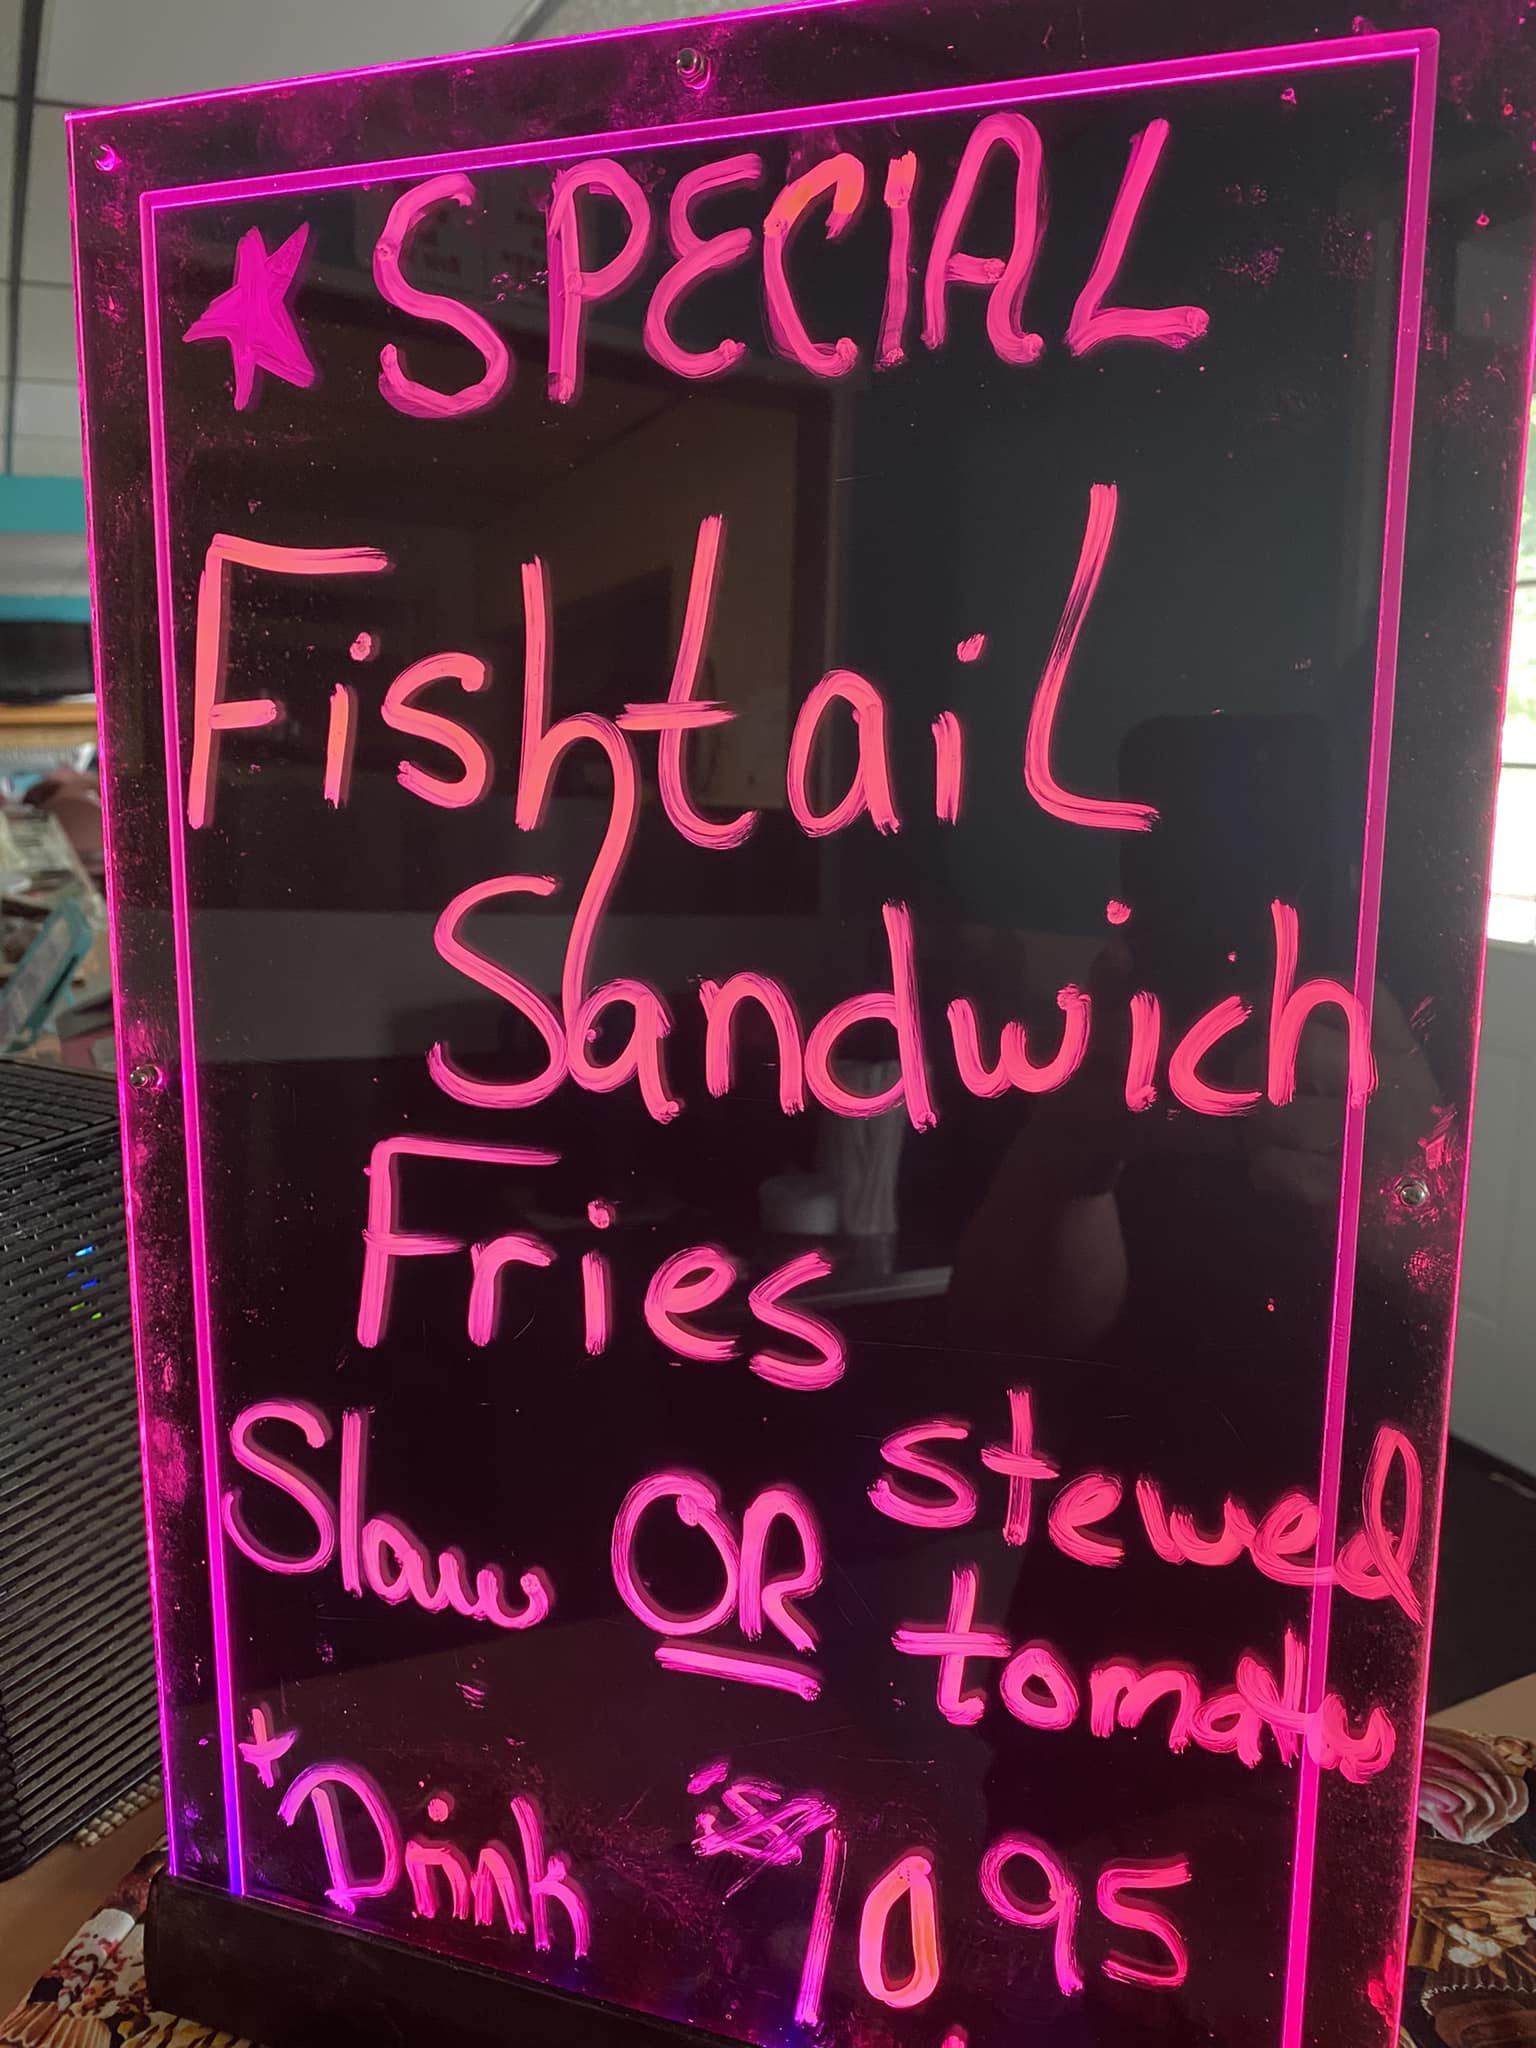 ★ SPECIAL
Fishtail
Sandwich
Fries
Slaw OR stewed
tomato
+ Drink $10.95